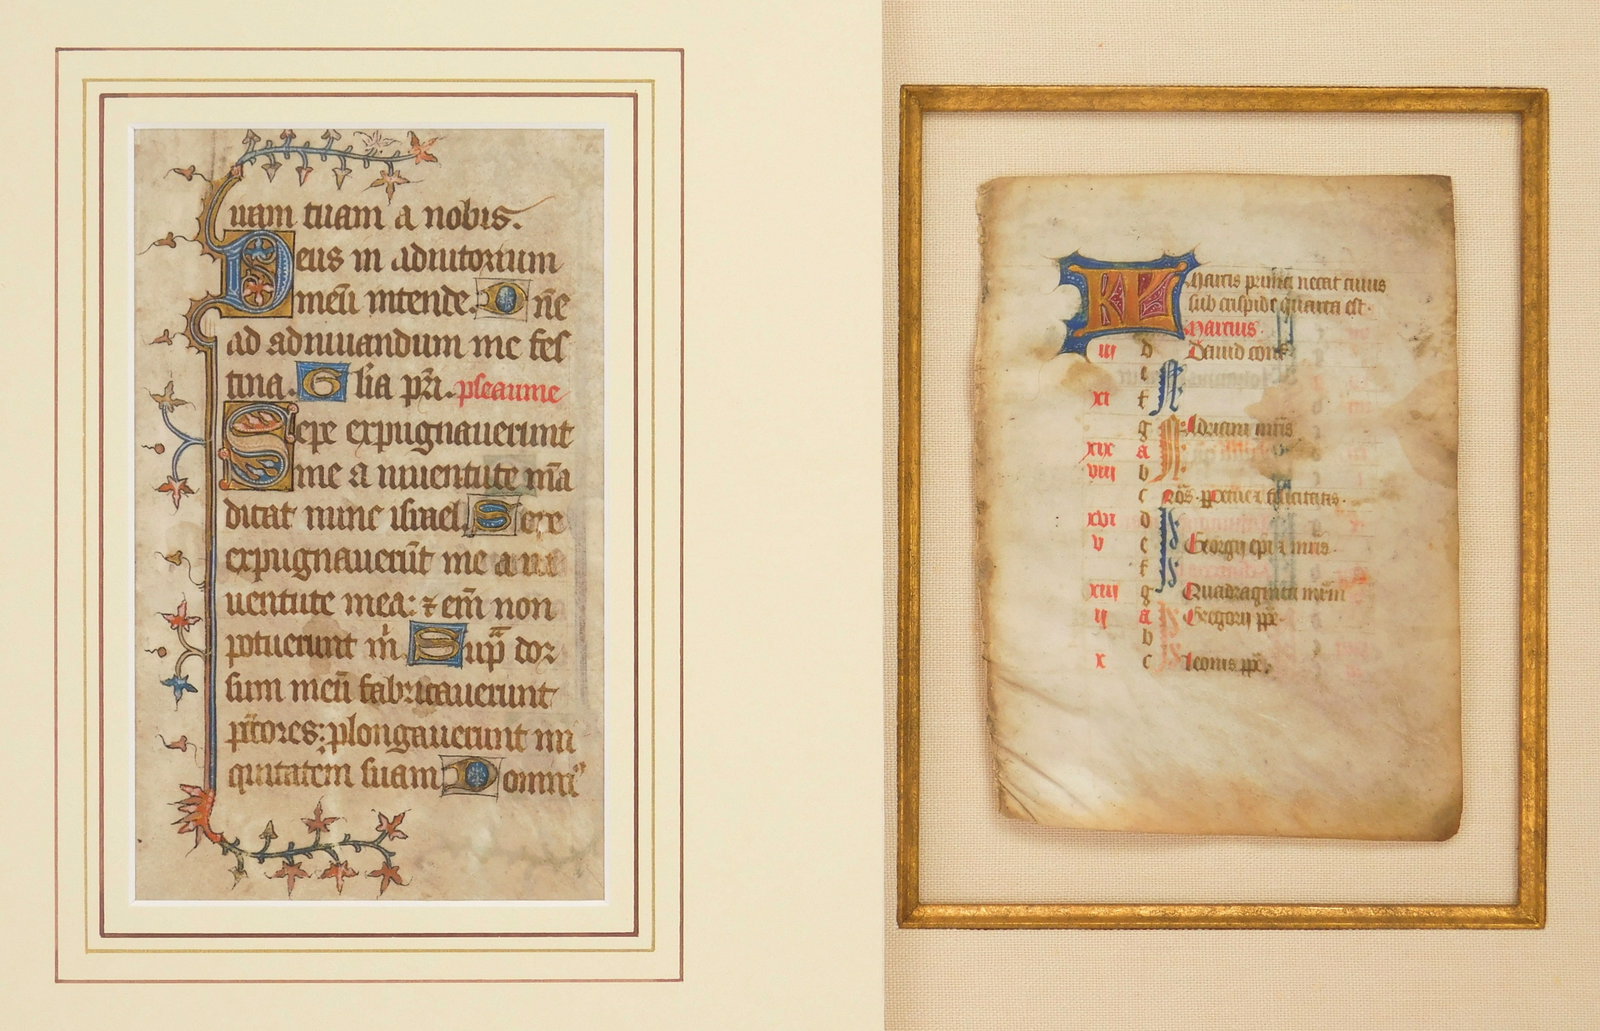 uam tuam a nobis.
Deus in adiutorium
meū intende. Dn̄e
ad adiuuandum me fes
tina. Glīa pr̄i. pseaume
Sepe expugnauerunt
me a iuuentute m̄a
dicat nunc israel. Sepe
expugnauerūt me a iu
uentute mea: ⁊ em̄ non
potuerunt m̄. Sup̄ dor
sum meū fabricauerunt
pc̄cores: plongauerunt ini
quitatem suam Domin⁹
KL Marcis primū necat cuius
sub cuspide quarta est.
Marcius.
iij d Dauid conf
e
xi f
g Adriani mr̄is
xix a
viij b
c Nōs. ppetue ⁊ felicitatis.
xvi d
v e Georgij epī ⁊ mr̄is.
f
xiij g Quadraginta mr̄m
ij a Gregorij pp̄e.
b
x c leonis pp̄e.